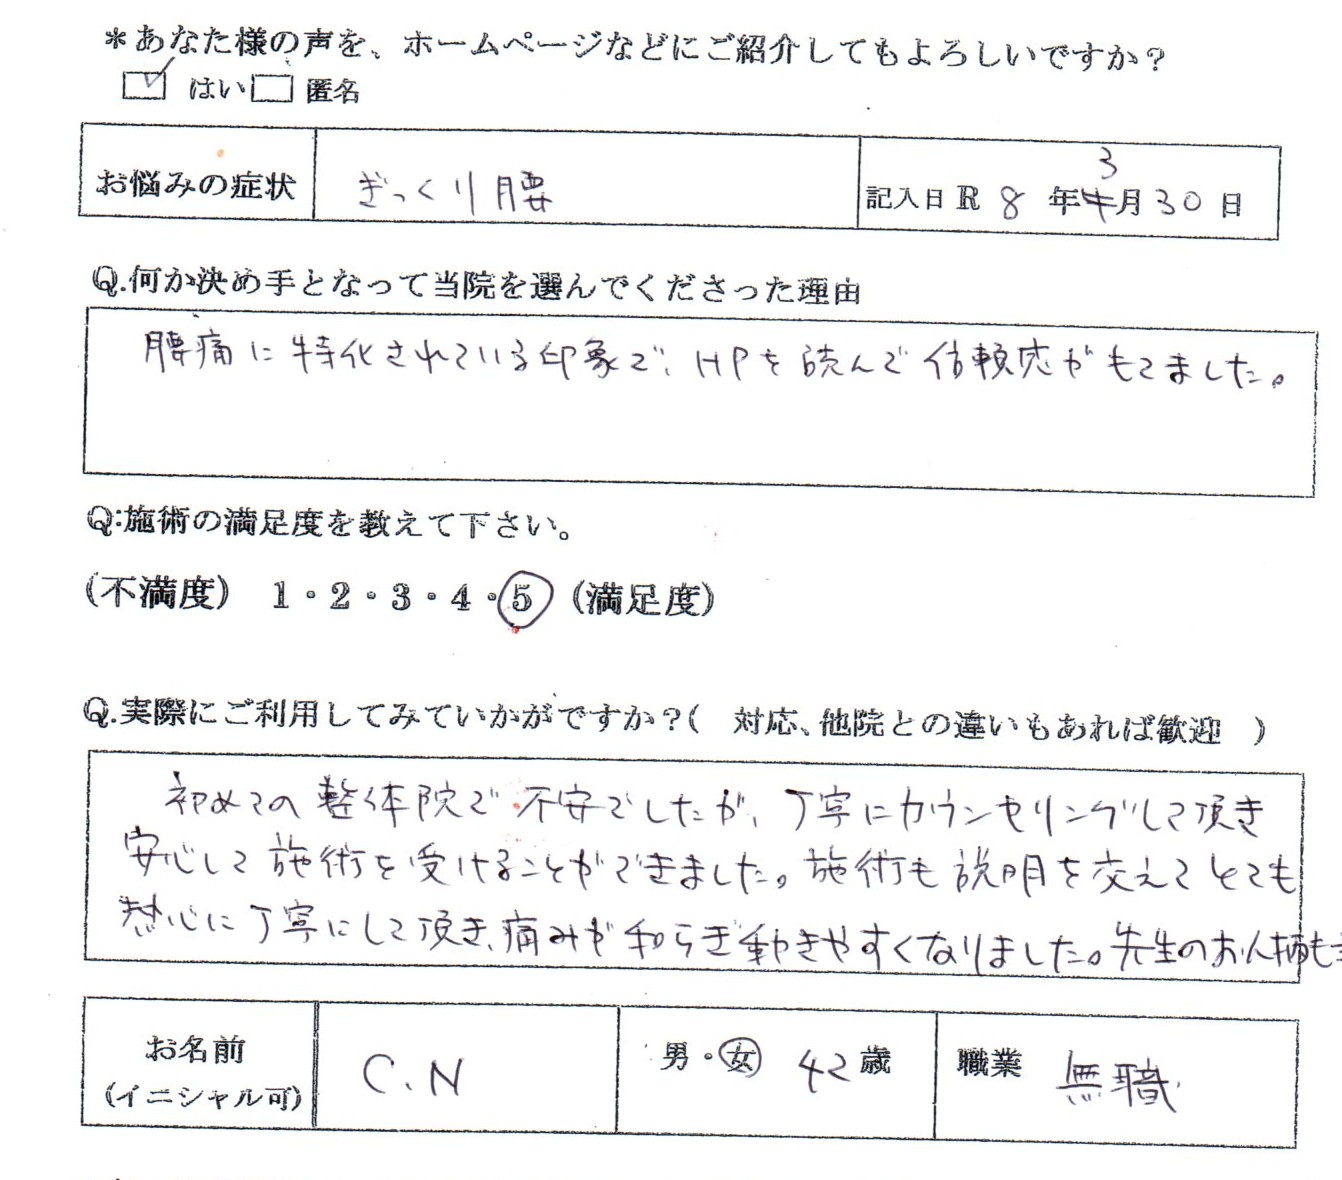 *あなた様の声を、ホームページなどにご紹介してもよろしいですか?
はい 匿名
お悩みの症状 ぎっくり腰 記入日R 8 年 3 月 30 日
Q.何か決め手となって当院を選んでくださった理由
腰痛に特化されている印象で、HPを読んで信頼応がもてました。
Q:施術の満足度を教えて下さい。
(不満度) 1・2・3・4・5 (満足度)
Q.実際にご利用してみていかがですか?( 対応、他院との違いもあれば歓迎 )
初めての整体院で不安でしたが、丁寧にカウンセリングして頂き
安心して施術を受けることができました。施術も説明を交えてとても
熱心に丁寧にして頂き、痛みが和らぎ動きやすくなりました。先生のお人柄も
お名前 C.N 男・女 42歳 職業 無職
(イニシャル可)